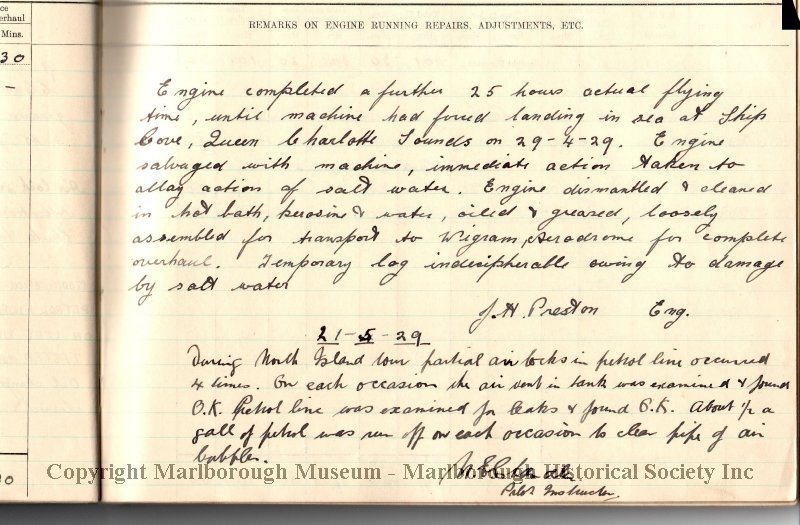 ce
erhaul
Mins.
30
REMARKS ON ENGINE RUNNING REPAIRS, ADJUSTMENTS, ETC.
Engine completed a further 25 hours actual flying
time, until machine had forced landing in sea at Ship
Cove, Queen Charlotte Sounds on 29-4-29. Engine
salvaged with machine, immediate action taken to
allay action of salt water. Engine dismantled & cleaned
in hot bath, kerosine & water, oiled & greased, loosely
assembled for transport to Wigram Aerodrome for complete
overhaul. Temporary log indecipherable owing to damage
by salt water
J. H. Preston Eng.
21-5-29
During North Island tour partial air locks in petrol line occurred
4 times. On each occasion the air vent in tank was examined & found
O.K. Petrol line was examined for leaks & found O.K. About 1/2 a
gall of petrol was run off on each occasion to clear pipe of air
bubbles.
Pilot Instructor
Copyright Marlborough Museum - Marlborough Historical Society Inc